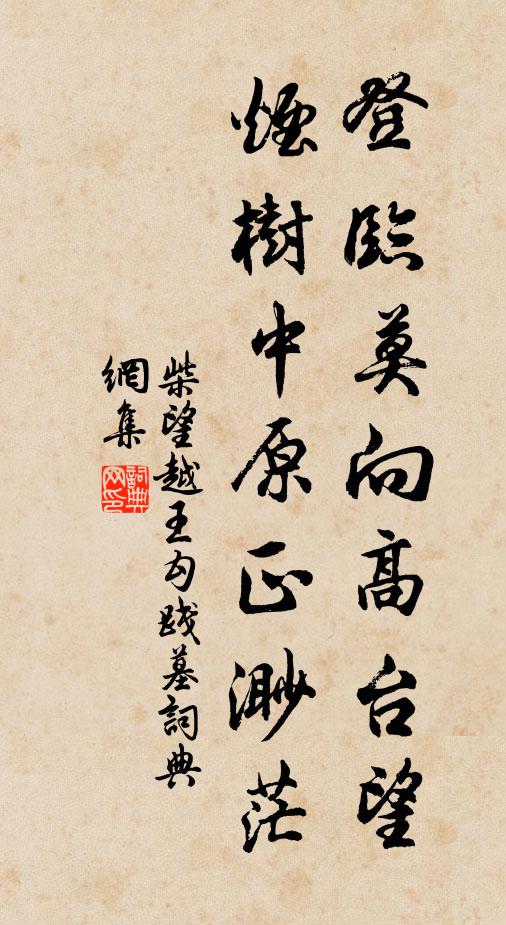 登臨莫向高台望
煙樹中原正渺茫
柴望越王勾踐墓詞典
網集
詞典网印